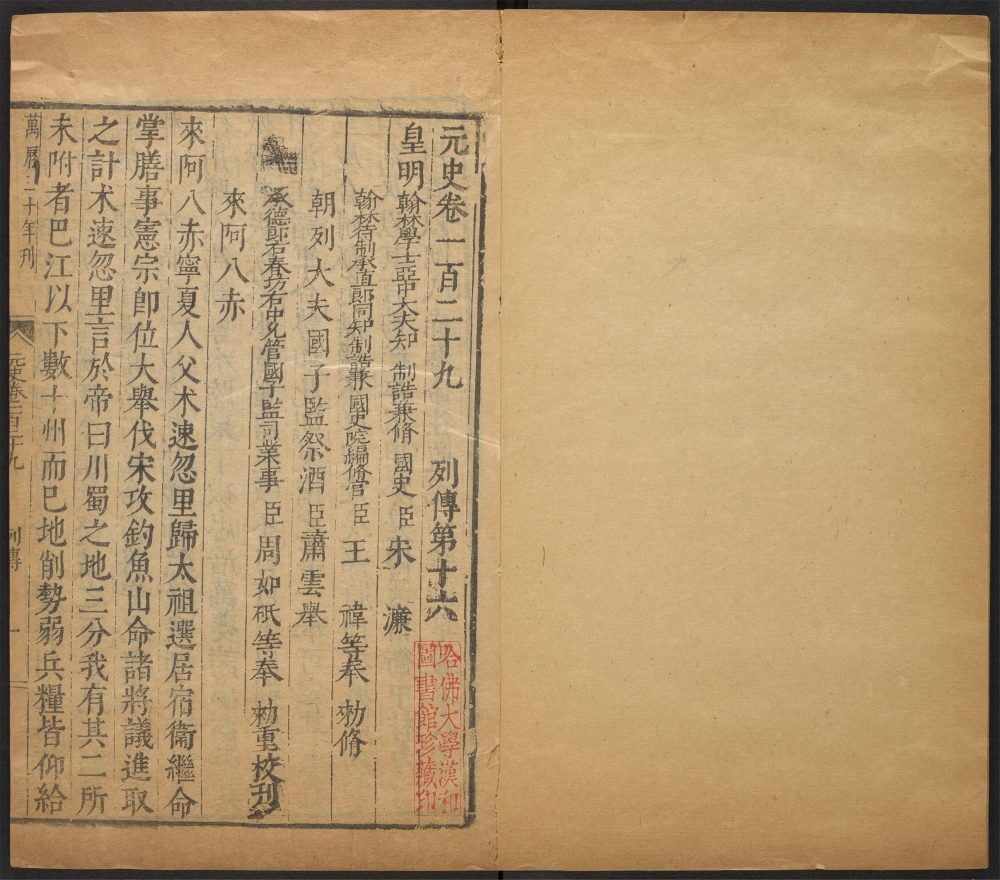 元史卷一百二十九　列傳第十六
皇明翰林學士亞中大夫知　制誥兼脩　國史臣宋　濂
翰林待制承直郎同知制誥兼國史院編脩官臣王　禕等奉　勑脩
朝列大夫國子監祭酒臣蕭雲舉
承德郎右春坊右中允管國子監司業事臣周如砥等奉　勑重校刊
來阿八赤
來阿八赤寧夏人父术速忽里歸太祖選居宿衛繼命
掌膳事憲宗卽位大舉伐宋攻釣魚山命諸將議進取
之計术速忽里言於帝曰川蜀之地三分我有其二所
未附者巴江以下數十州而已地削勢弱兵糧皆仰給
萬曆二十年刊
元史卷一百二十九　列傳　一
哈佛大學漢和
圖書館珍藏印